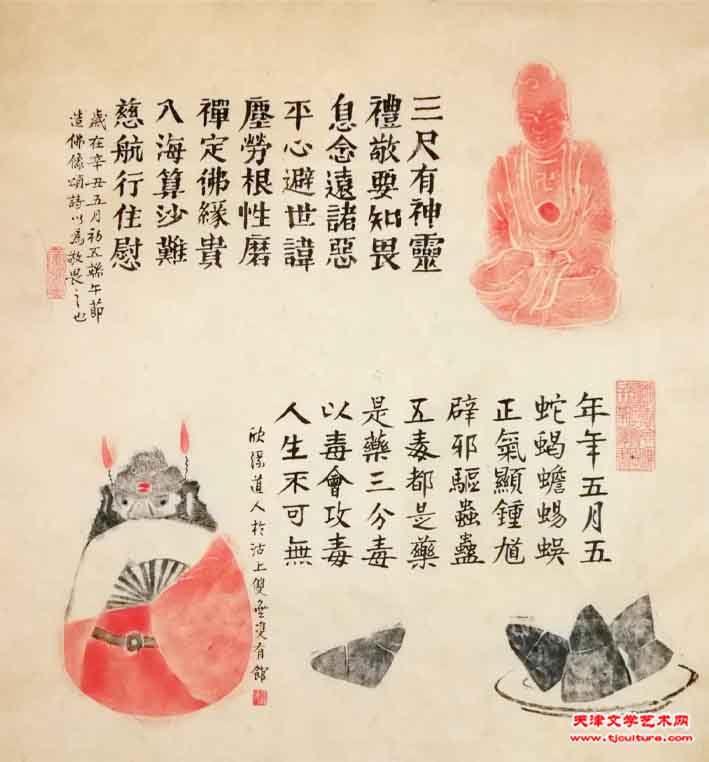 三尺有神靈
禮敬要知畏
息念遠諸惡
平心避世諱
塵勞根性磨
禪定佛緣貴
八海算沙難
慈航行住慰
歲在辛丑五月初五端午節
造佛像頌詩以為敬畏之也
年年五月五
蛇蝎蟾蜴蜈
正氣顯鍾馗
辟邪驅蟲蠱
五毒都是藥
是藥三分毒
以毒會攻毒
人生不可無
欣深道人於沽上雙無雙有館
天津文学艺术网
www.tjculture.com